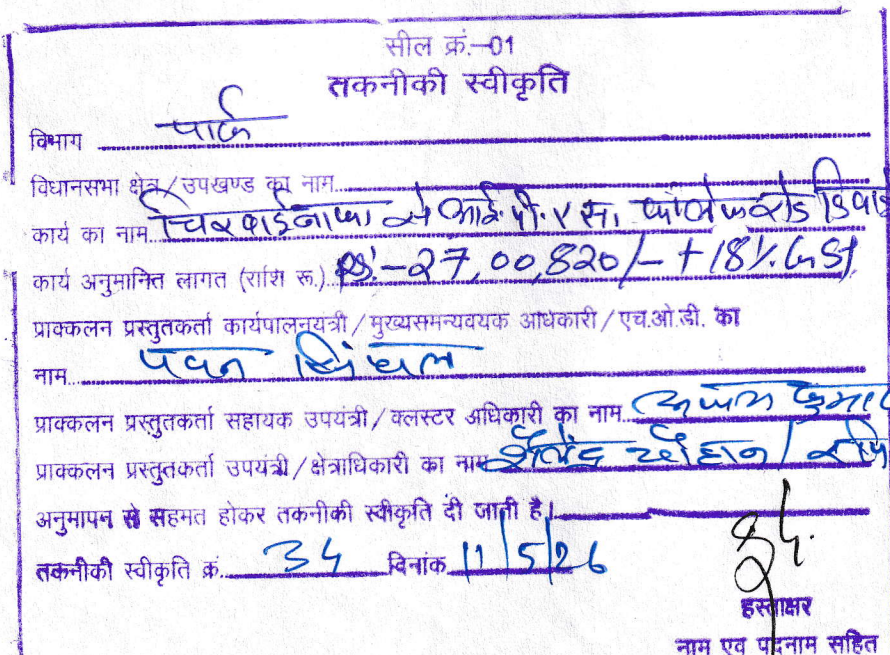 सील क्रं.-01
तकनीकी स्वीकृति
विभाग पार्क
विधानसभा क्षेत्र/उपखण्ड का नाम
कार्य का नाम चिरवाईनाका से आई.पी.एस. रोड डिवाई
कार्य अनुमानित लागत (राशि रू.) रू:-27,00,820/- +18%. GST
प्राक्कलन प्रस्तुतकर्ता कार्यपालनयंत्री/मुख्यसमन्यवयक अधिकारी/एच.ओ.डी. का
नाम पवन सिंघल
प्राक्कलन प्रस्तुतकर्ता सहायक उपयंत्री/क्लस्टर अधिकारी का नाम कुमार
प्राक्कलन प्रस्तुतकर्ता उपयंत्री/क्षेत्राधिकारी का नाम शैलेंद्र चौहान/
अनुमापन से सहमत होकर तकनीकी स्वीकृति दी जाती है।
तकनीकी स्वीकृति क्रं. 34 दिनांक 11/5/26
हस्ताक्षर
नाम एवं पदनाम सहित